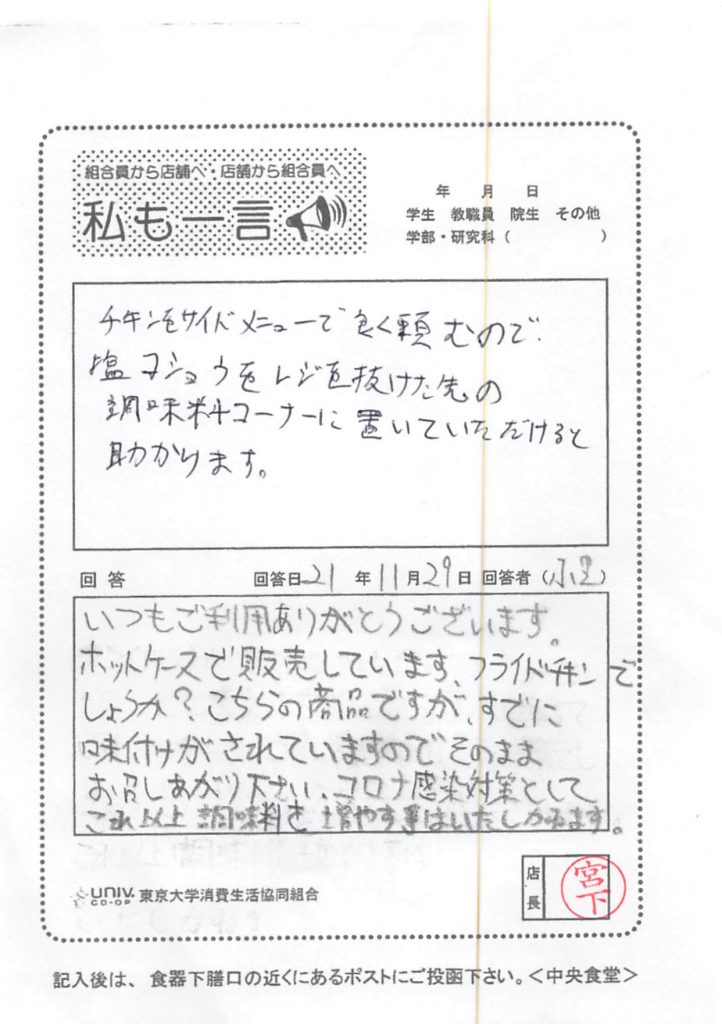 組合員から店舗へ・店舗から組合員へ
私も一言
年 月 日
学生 教職員 院生 その他
学部・研究科( )
チキンをサイドメニューで良く頼むので、
塩コショウをレジを抜けた先の
調味料コーナーに置いていただけると
助かります。
回答 回答日 21 年 11 月 29 日 回答者 (小里)
いつもご利用ありがとうございます。
ホットケースで販売しています、フライドチキンで
しょうか?こちらの商品ですが、すでに
味付けがされていますのでそのまま
お召しあがり下さい、コロナ感染対策として
これ以上調味料を増やす事はいたしかねます。
UNIV. CO-OP 東京大学消費生活協同組合
店長 宮下
記入後は、食器下膳口の近くにあるポストにご投函下さい。<中央食堂>